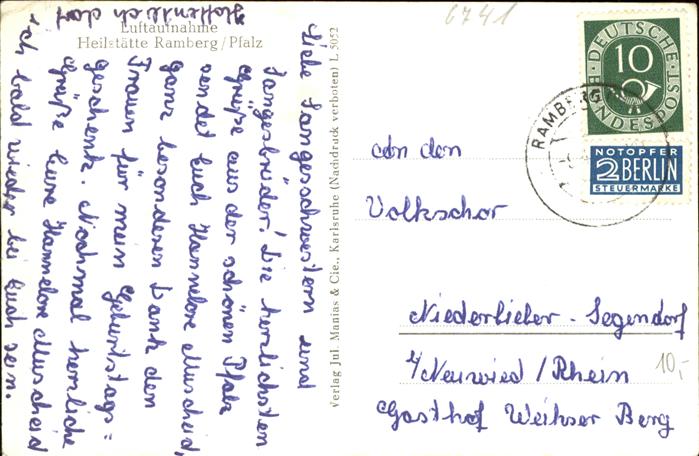 Luftaufnahme
Heilstätte Ramberg/Pfalz
Liebe Sangesschwestern und
Sangesbrüder! Die herzlichsten
Grüße aus der schönen Pfalz
sendet Euch Hannelore Muscheid,
ganz besonderen Dank den
Frauen für mein Geburtstags=
geschenk. Nochmal herzliche
Grüße Eure Hannelore Muscheid
Hoffentlich darf
ich bald wieder bei Euch sein.
Verlag Jul. Manias & Cie., Karlsruhe (Nachdruck verboten) L 5052
6741
DEUTSCHE BUNDESPOST
10
NOTOPFER
2 BERLIN
STEUERMARKE
RAMBERG
An den
Volkschor
Niederbieber-Segendorf
b/Neuwied/Rhein
Gasthof Weihser Berg
10,-